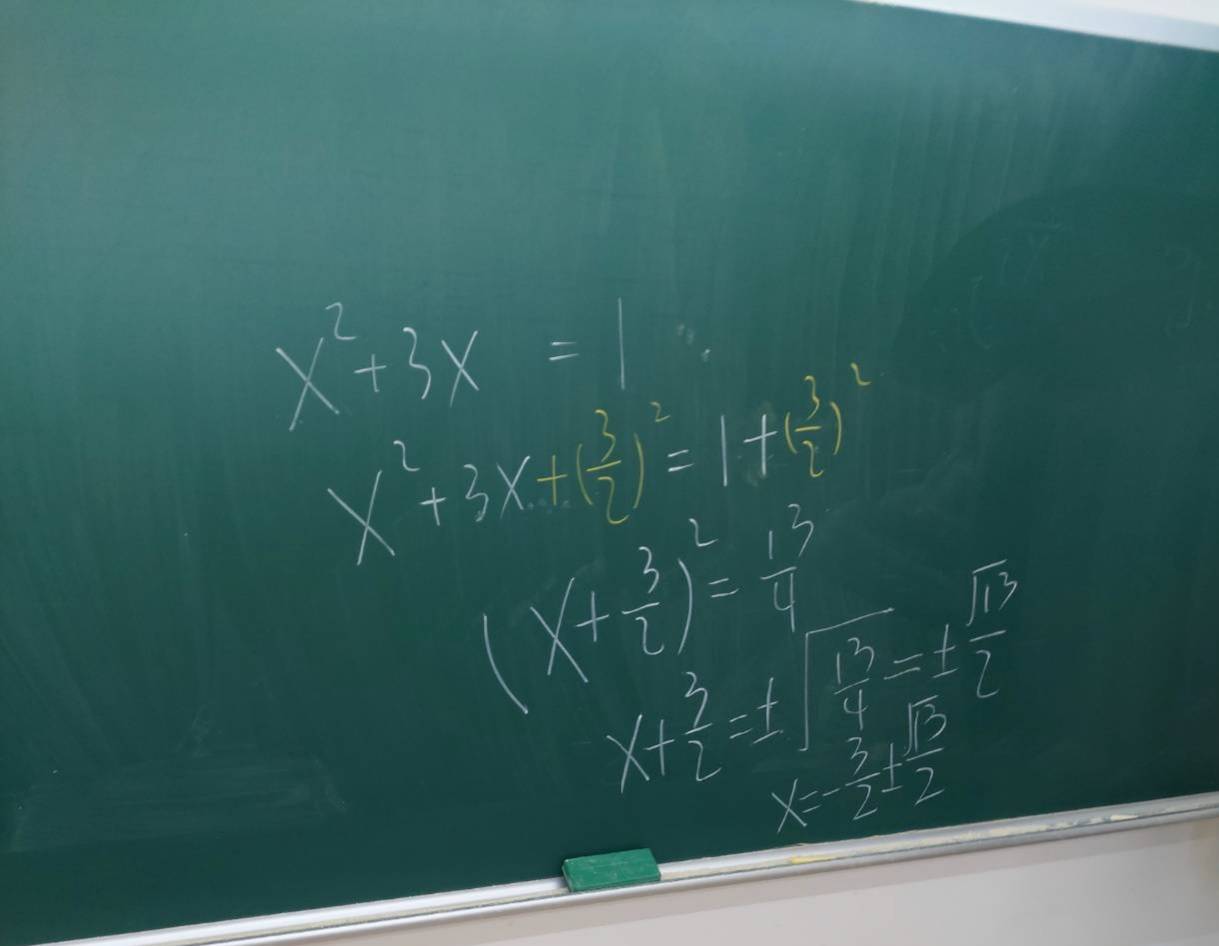 x²+3x =1
x²+3x+(3/2)²=1+(3/2)²
(x+3/2)²=13/4
x+3/2=±√(13/4)=±√13/2
x=-3/2±√13/2